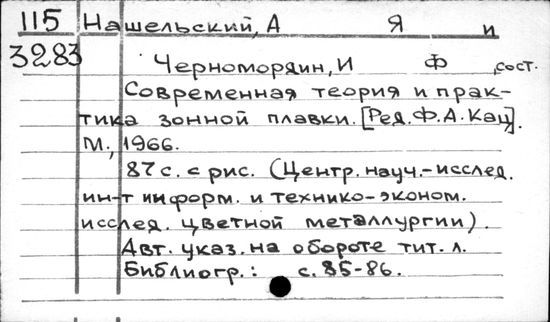 115 Нашельский, А Я и
3283
Черноморяин, И Ф сост.
Современная теория и прак-
тика зонной плавки. [Ред. Ф.А. Кац].
М., 1966.
87 с. с рис. (Центр. науч.-исслед.
ин-т информ. и технико-эконом.
исслед. цветной металлургии).
Авт. указ. на обороте тит. л.
Библиогр.: с. 85-86.